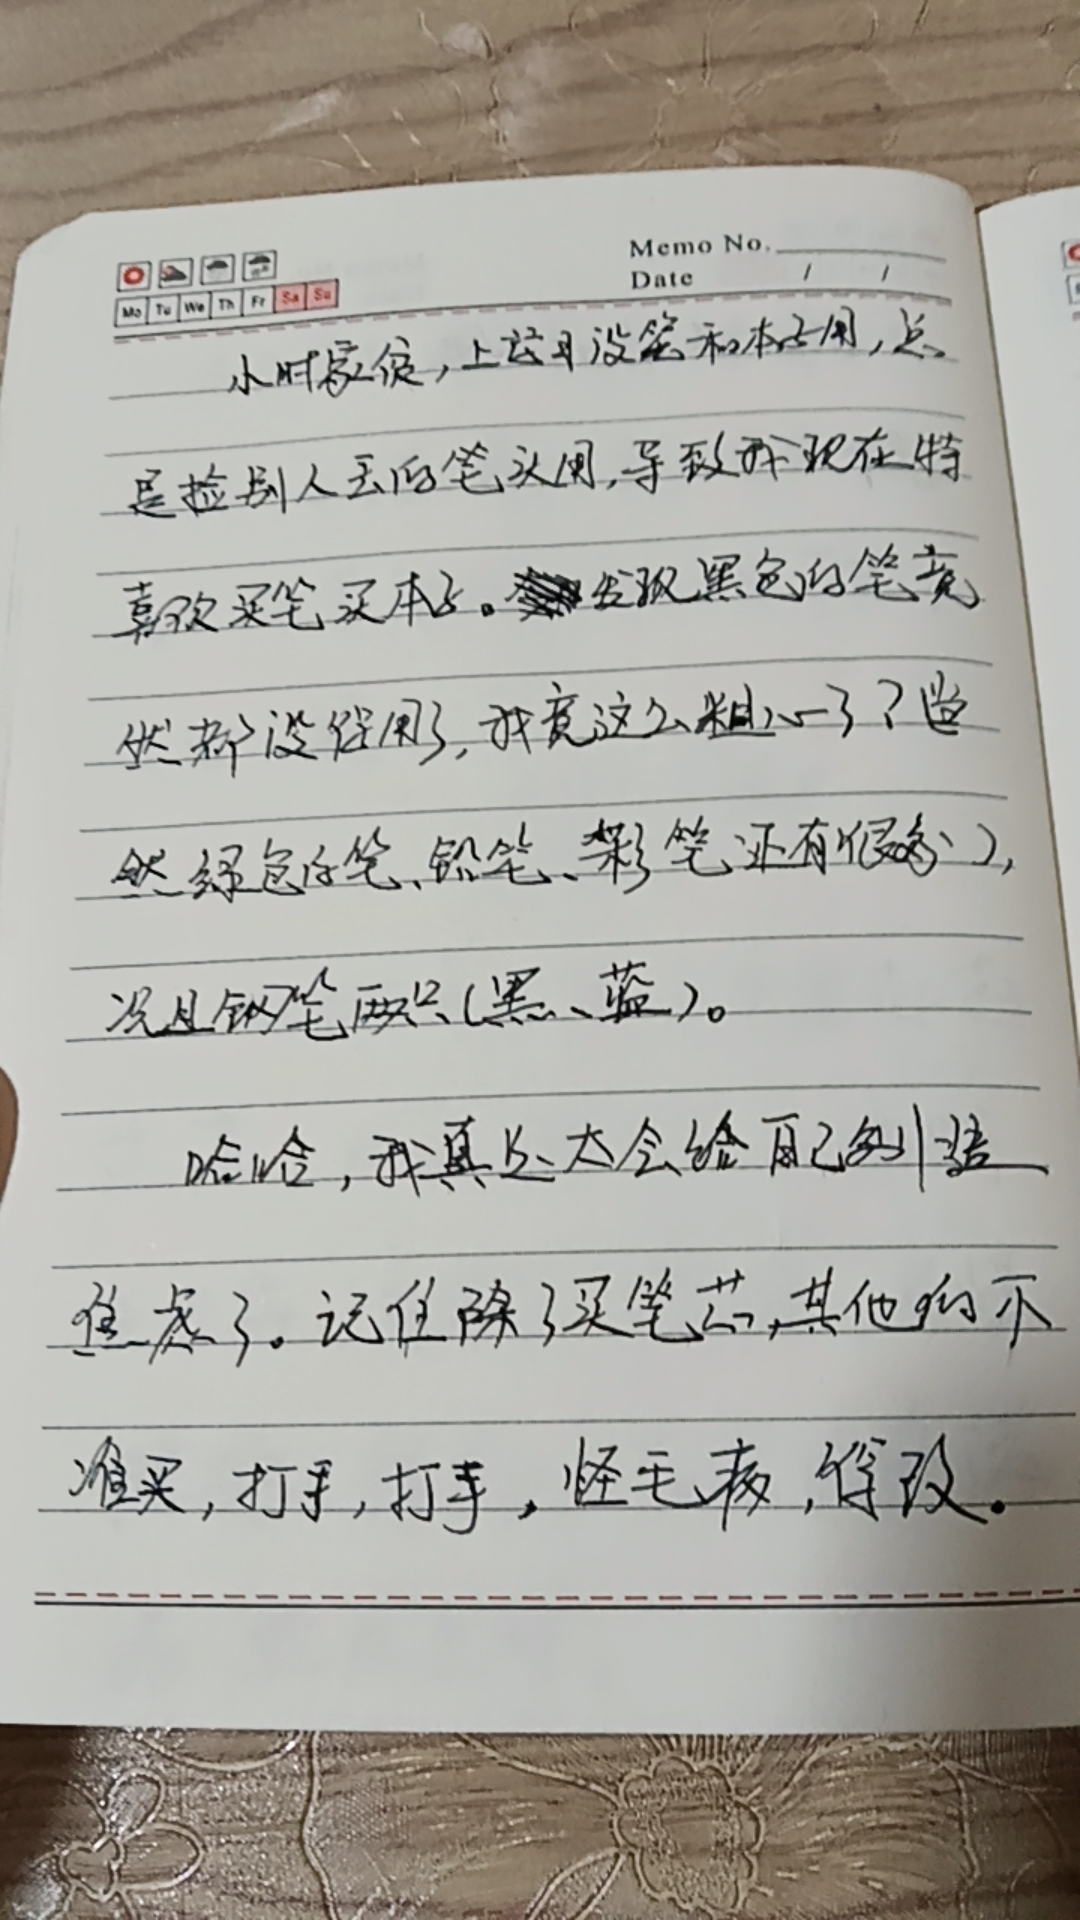 Memo No.
Date / /
Mo Tu We Th Fr Sa Su
小时家信,上学时没笔和本子用,总
是捡别人丢的笔头用,导致我现在特
喜欢买笔买本子。发现黑色的笔竟
然都没得用了,我竟这么粗心了?当
然绿色的笔、铅笔、彩笔还有很多),
况且钢笔两只(黑、蓝)。
哈哈,我真是太会给自己制造
焦虑了。记住除了买笔芯,其他的不
准买,打手,打手,怪毛病,得改。